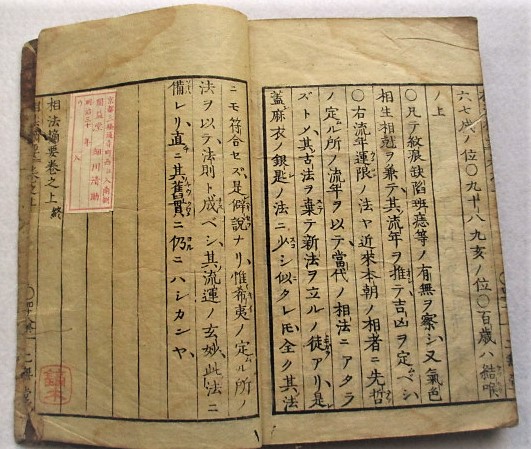 六七歳ノ位〇九十八九亥ノ位〇百歳ハ結喉
ノ上
〇凡テ紋痕缺陷班痣等ノ有無ヲ察シ又氣色
相生相尅ヲ兼テ其流年ヲ推テ吉凶ヲ定ベシ
〇右流年運限ノ法ヤ近來本朝ノ相者ニ先哲
ノ定ル所ノ流年ヲ以テ當代ノ相法ニアタラ
ズトメ其古法ヲ棄テ新法ヲ立ルノ徒アリ是
蓋麻衣ノ銀匙ノ法ニ少シ似タレモ全ク其法
ニモ符合セズ是僻説ナリ惟希夷ノ定ル所ノ
法ヲ以テ法則ト成ベシ其流運ノ玄妙此法ニ
備レリ直ニ其舊貫ニ仍ニハシカンヤ
相法摘要巻之上終